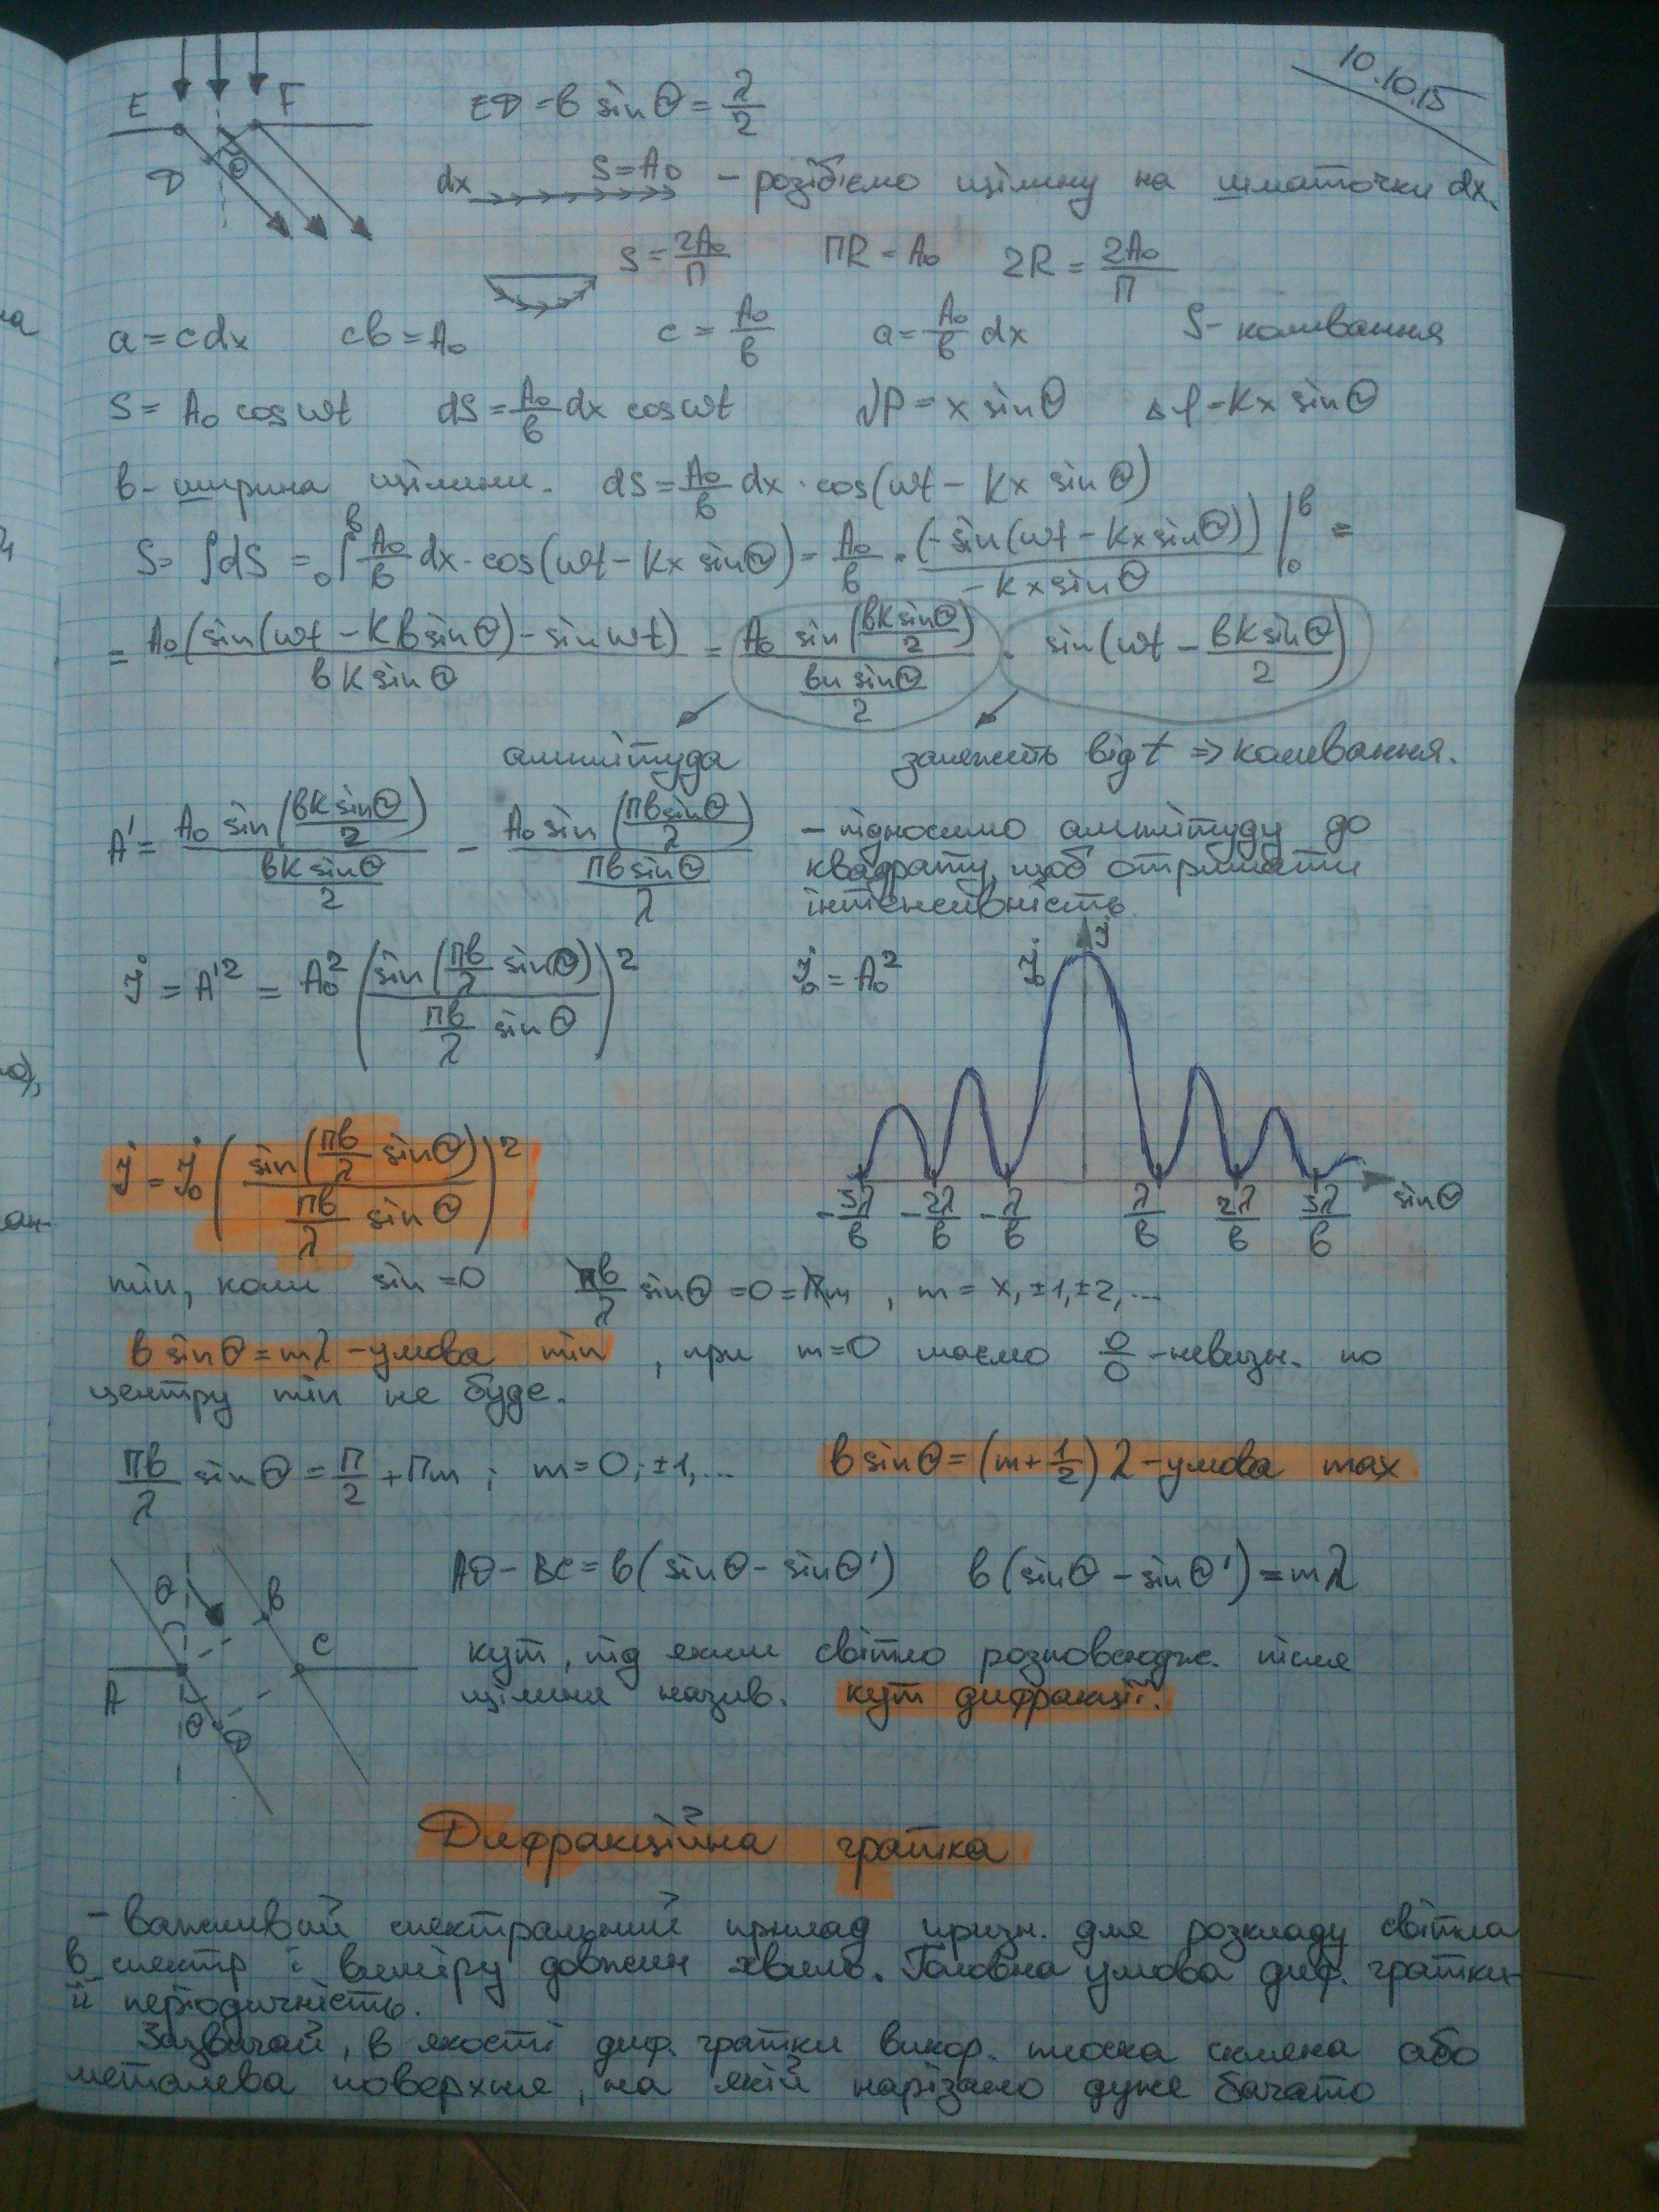 10.10.15
E F D θ ED = b sinθ = λ/2
dx S = A₀ - розіб'ємо щілину на шматочки dx
S = 2A₀/π πR = A₀ 2R = 2A₀/π
a = cdx cb = A₀ c = A₀/b a = A₀/b dx S - коливання
S = A₀ cos ωt dS = A₀/b dx cos ωt NP = x sinθ Δφ = kx sinθ
b - ширина щілини. dS = A₀/b dx · cos(ωt - kx sinθ)
S = ∫dS = ₀∫ᵇ A₀/b dx · cos(ωt - kx sinθ) = A₀/b · (-sin(ωt - kx sinθ))/(-kx sinθ) |₀ᵇ =
= A₀(sin(ωt - kb sinθ) - sin ωt)/(bk sinθ) = A₀ sin(bk sinθ/2)/(bk sinθ/2) · sin(ωt - bk sinθ/2)
амплітуда залежність від t => коливання.
A' = A₀ sin(bk sinθ/2)/(bk sinθ/2) - A₀ sin(πb sinθ/λ)/(πb sinθ/λ) - підносимо амплітуду до
квадрату, щоб отримати
інтенсивність.
J = A'² = A₀² (sin(πb/λ sinθ)/(πb/λ sinθ))² J₀ = A₀²
J = J₀ (sin(πb/λ sinθ)/(πb/λ sinθ))²
J₀ J
-3λ/b -2λ/b -λ/b λ/b 2λ/b 3λ/b sinθ
min, коли sin = 0 πb/λ sinθ = 0 = πm, m = x, ±1, ±2, ...
b sinθ = mλ - умова min, при m = 0 маємо 0/0 - невизн. но
центру min не буде.
πb/λ sinθ = π/2 + πm; m = 0; ±1, ... b sinθ = (m + 1/2)λ - умова max
AD - BC = b(sinθ - sinθ') b(sinθ - sinθ') = mλ
A θ B C θ' D
кут, під яким світло розповсюдж. після
щілини назив. кут дифракції.
Дифракційна гратка
- важливий спектральний прилад призн. для розкладу світла
в спектр і виміру довжин хвиль. Головна умова диф. гратки
її періодичність.
Зазвичай, в якості диф. гратки викор. плоска скляна або
металева поверхня, на якій нарізано дуже багато